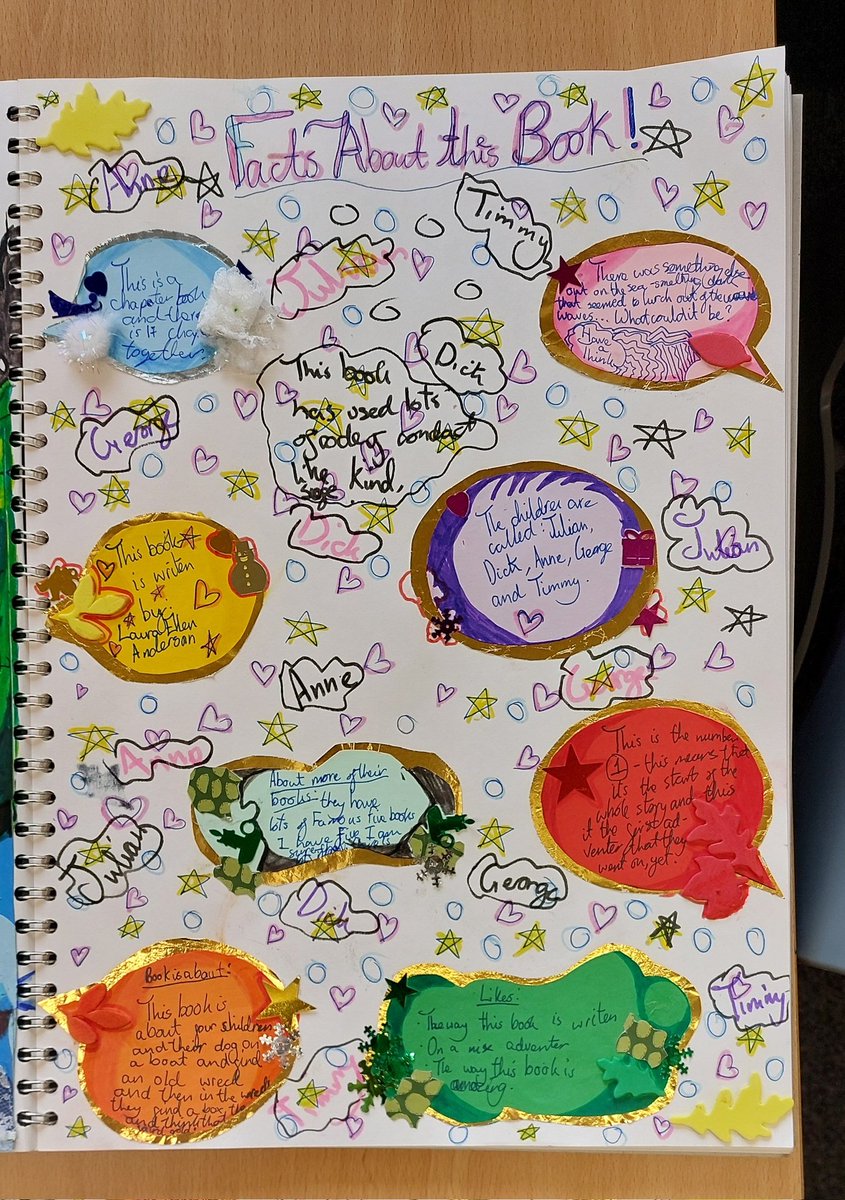 Facts About this Book!
Anne
Timmy
This is a
chapter book
and there
is 17 chap
together.
Julian
There was something else
out on the sea - smething dark
that seemed to lurch out of the
waves... What could it be?
Have
Think
Dick
This book
has used lots
of conduct
like kind,
George
Dick
The children are
called: Julian,
Dick, Anne, George
and Timmy.
Julian
This book
is writen
by:
Laura Ellen
Andersan
Anne
George
This is the number
1 - this means that
its the start of the
whole story and this
it the first ad-
venter that they
went on, yet.
Anne
About more of their
books - they have
lots of Famous five books
I have Five I am
Julian
George
Dick
Book is about:
This book is
about four children
and their dog on
a boat and find
an old wreck
and then in the wreck
they find a box, the
and
Likes:
· The way this book is writen
· On a nise adventer
The way this book is
amazing.
Timmy
Timmy